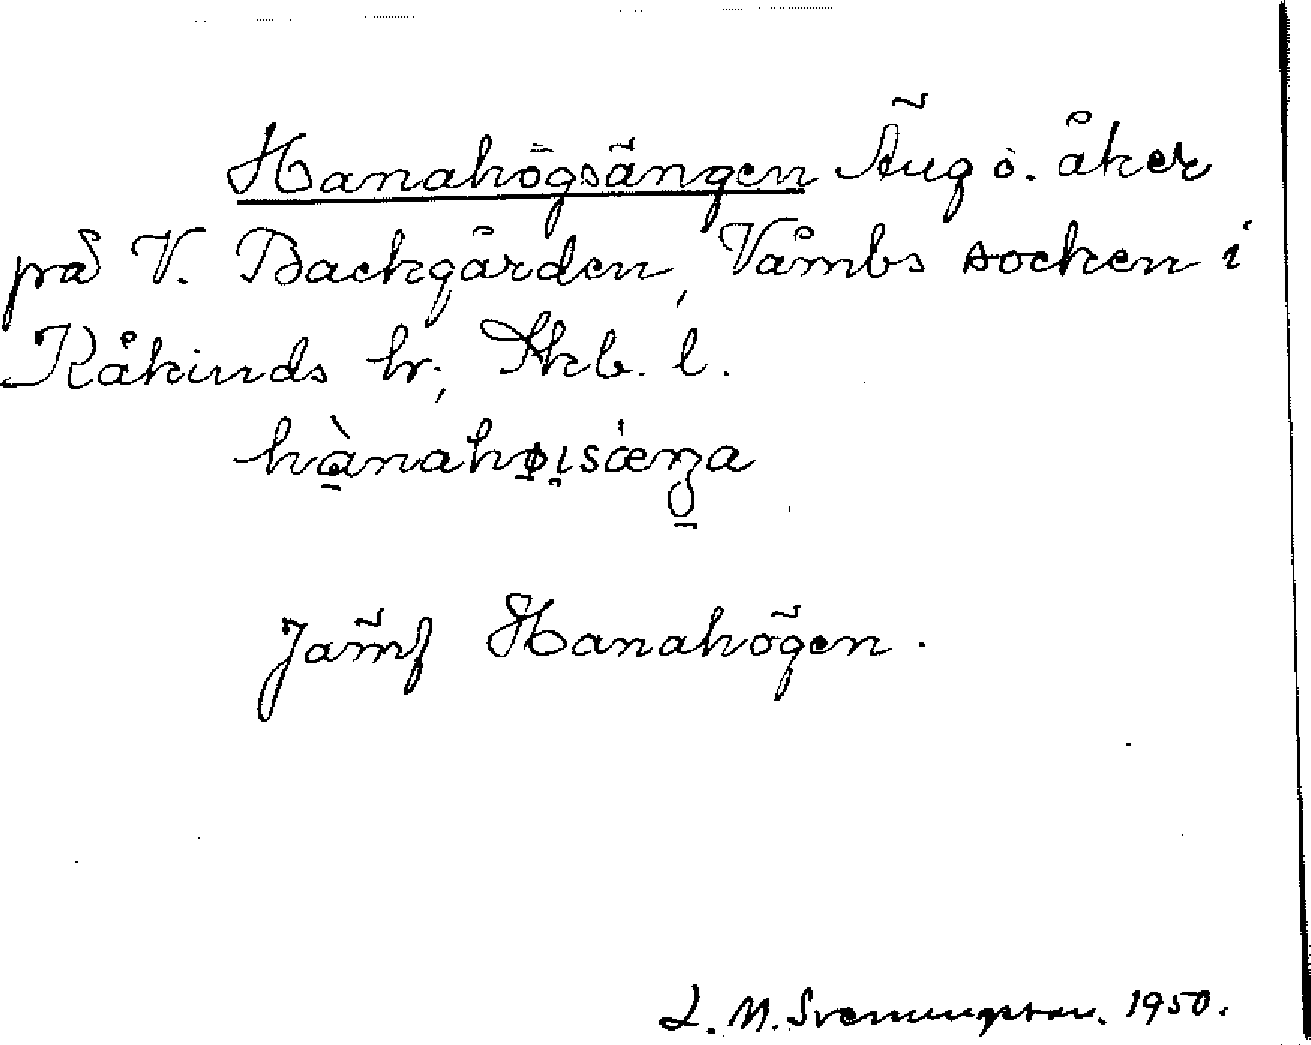 Hanahögsängen Äng o. åker
på V. Backgården, Våmbs socken i
Kåkinds hr, Skb. l.
hànahøɪsǽŋa
Jämf Hanahögen.
L. M. Svenungsson. 1950.